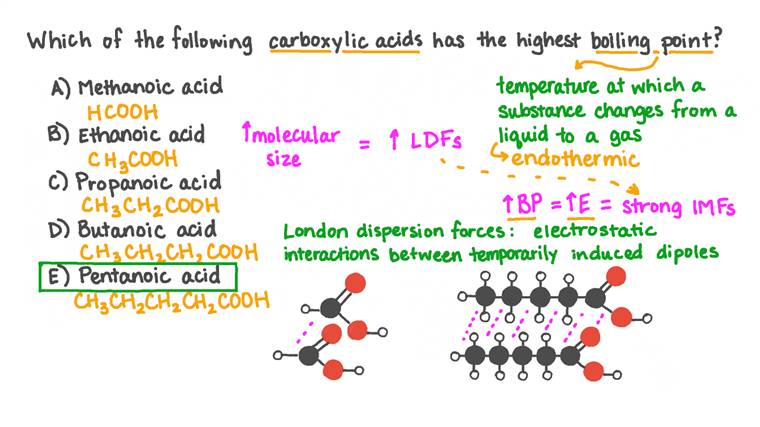 Which of the following carboxylic acids has the highest boiling point?
A) Methanoic acid
HCOOH
B) Ethanoic acid
CH₃COOH
C) Propanoic acid
CH₃CH₂COOH
D) Butanoic acid
CH₃CH₂CH₂COOH
E) Pentanoic acid
CH₃CH₂CH₂CH₂COOH
temperature at which a
substance changes from a
liquid to a gas
endothermic
↑molecular
size = ↑ LDFs
↑BP = ↑E = strong IMFs
London dispersion forces: electrostatic
interactions between temporarily induced dipoles